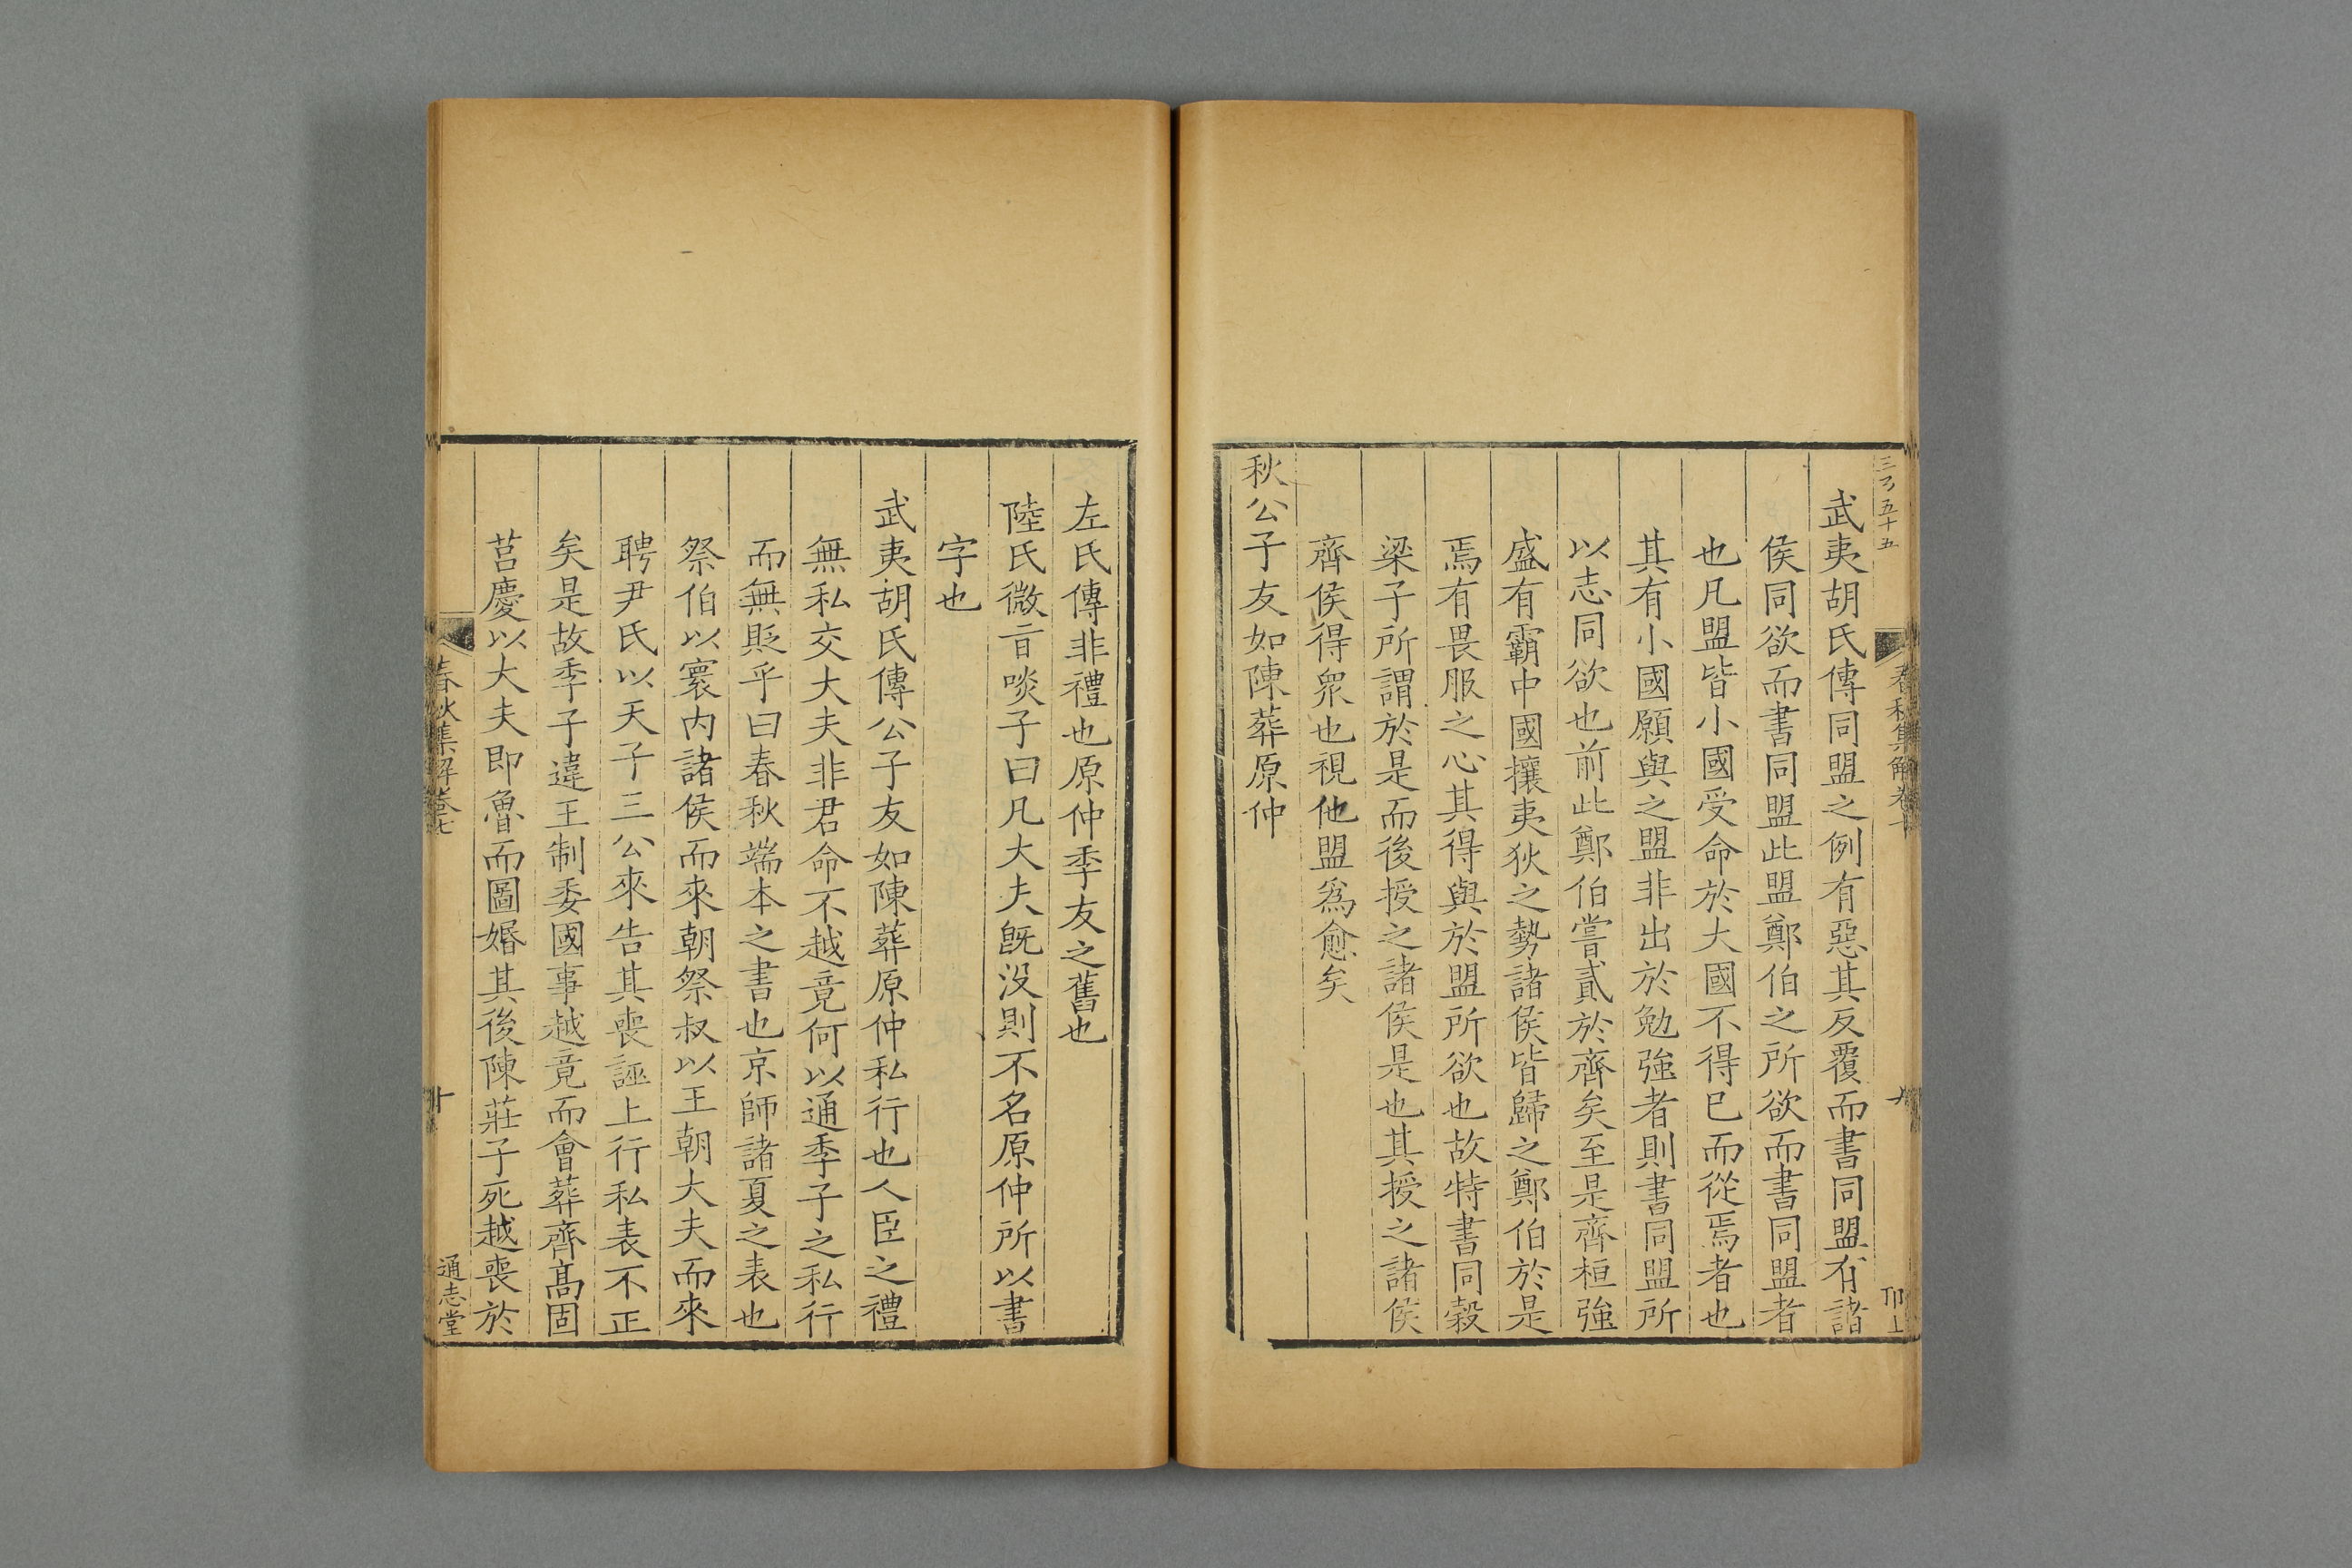 武夷胡氏傳同盟之例有惡其反覆而書同盟有諸
侯同欲而書同盟此盟鄭伯之所欲而書同盟者
也凡盟皆小國受命於大國不得已而從焉者也
其有小國願與之盟非出於勉強者則書同盟所
以志同欲也前此鄭伯嘗貳於齊矣至是齊桓強
盛有霸中國攘夷狄之勢諸侯皆歸之鄭伯於是
焉有畏服之心其得與於盟所欲也故特書同穀
梁子所謂於是而後授之諸侯是也其授之諸侯
齊侯得眾也視他盟爲愈矣
秋公子友如陳葬原仲
左氏傳非禮也原仲季友之舊也
陸氏微旨啖子曰凡大夫旣没則不名原仲所以書
字也
武夷胡氏傳公子友如陳葬原仲私行也人臣之禮
無私交大夫非君命不越竟何以通季子之私行
而無貶乎曰春秋端本之書也京師諸夏之表也
祭伯以寰内諸侯而來朝祭叔以王朝大夫而來
聘尹氏以天子三公來告其喪誣上行私表不正
矣是故季子違王制委國事越竟而會葬齊高固
莒慶以大夫即魯而圖婚其後陳莊子死越喪於
春秋集解卷七
十
通志堂